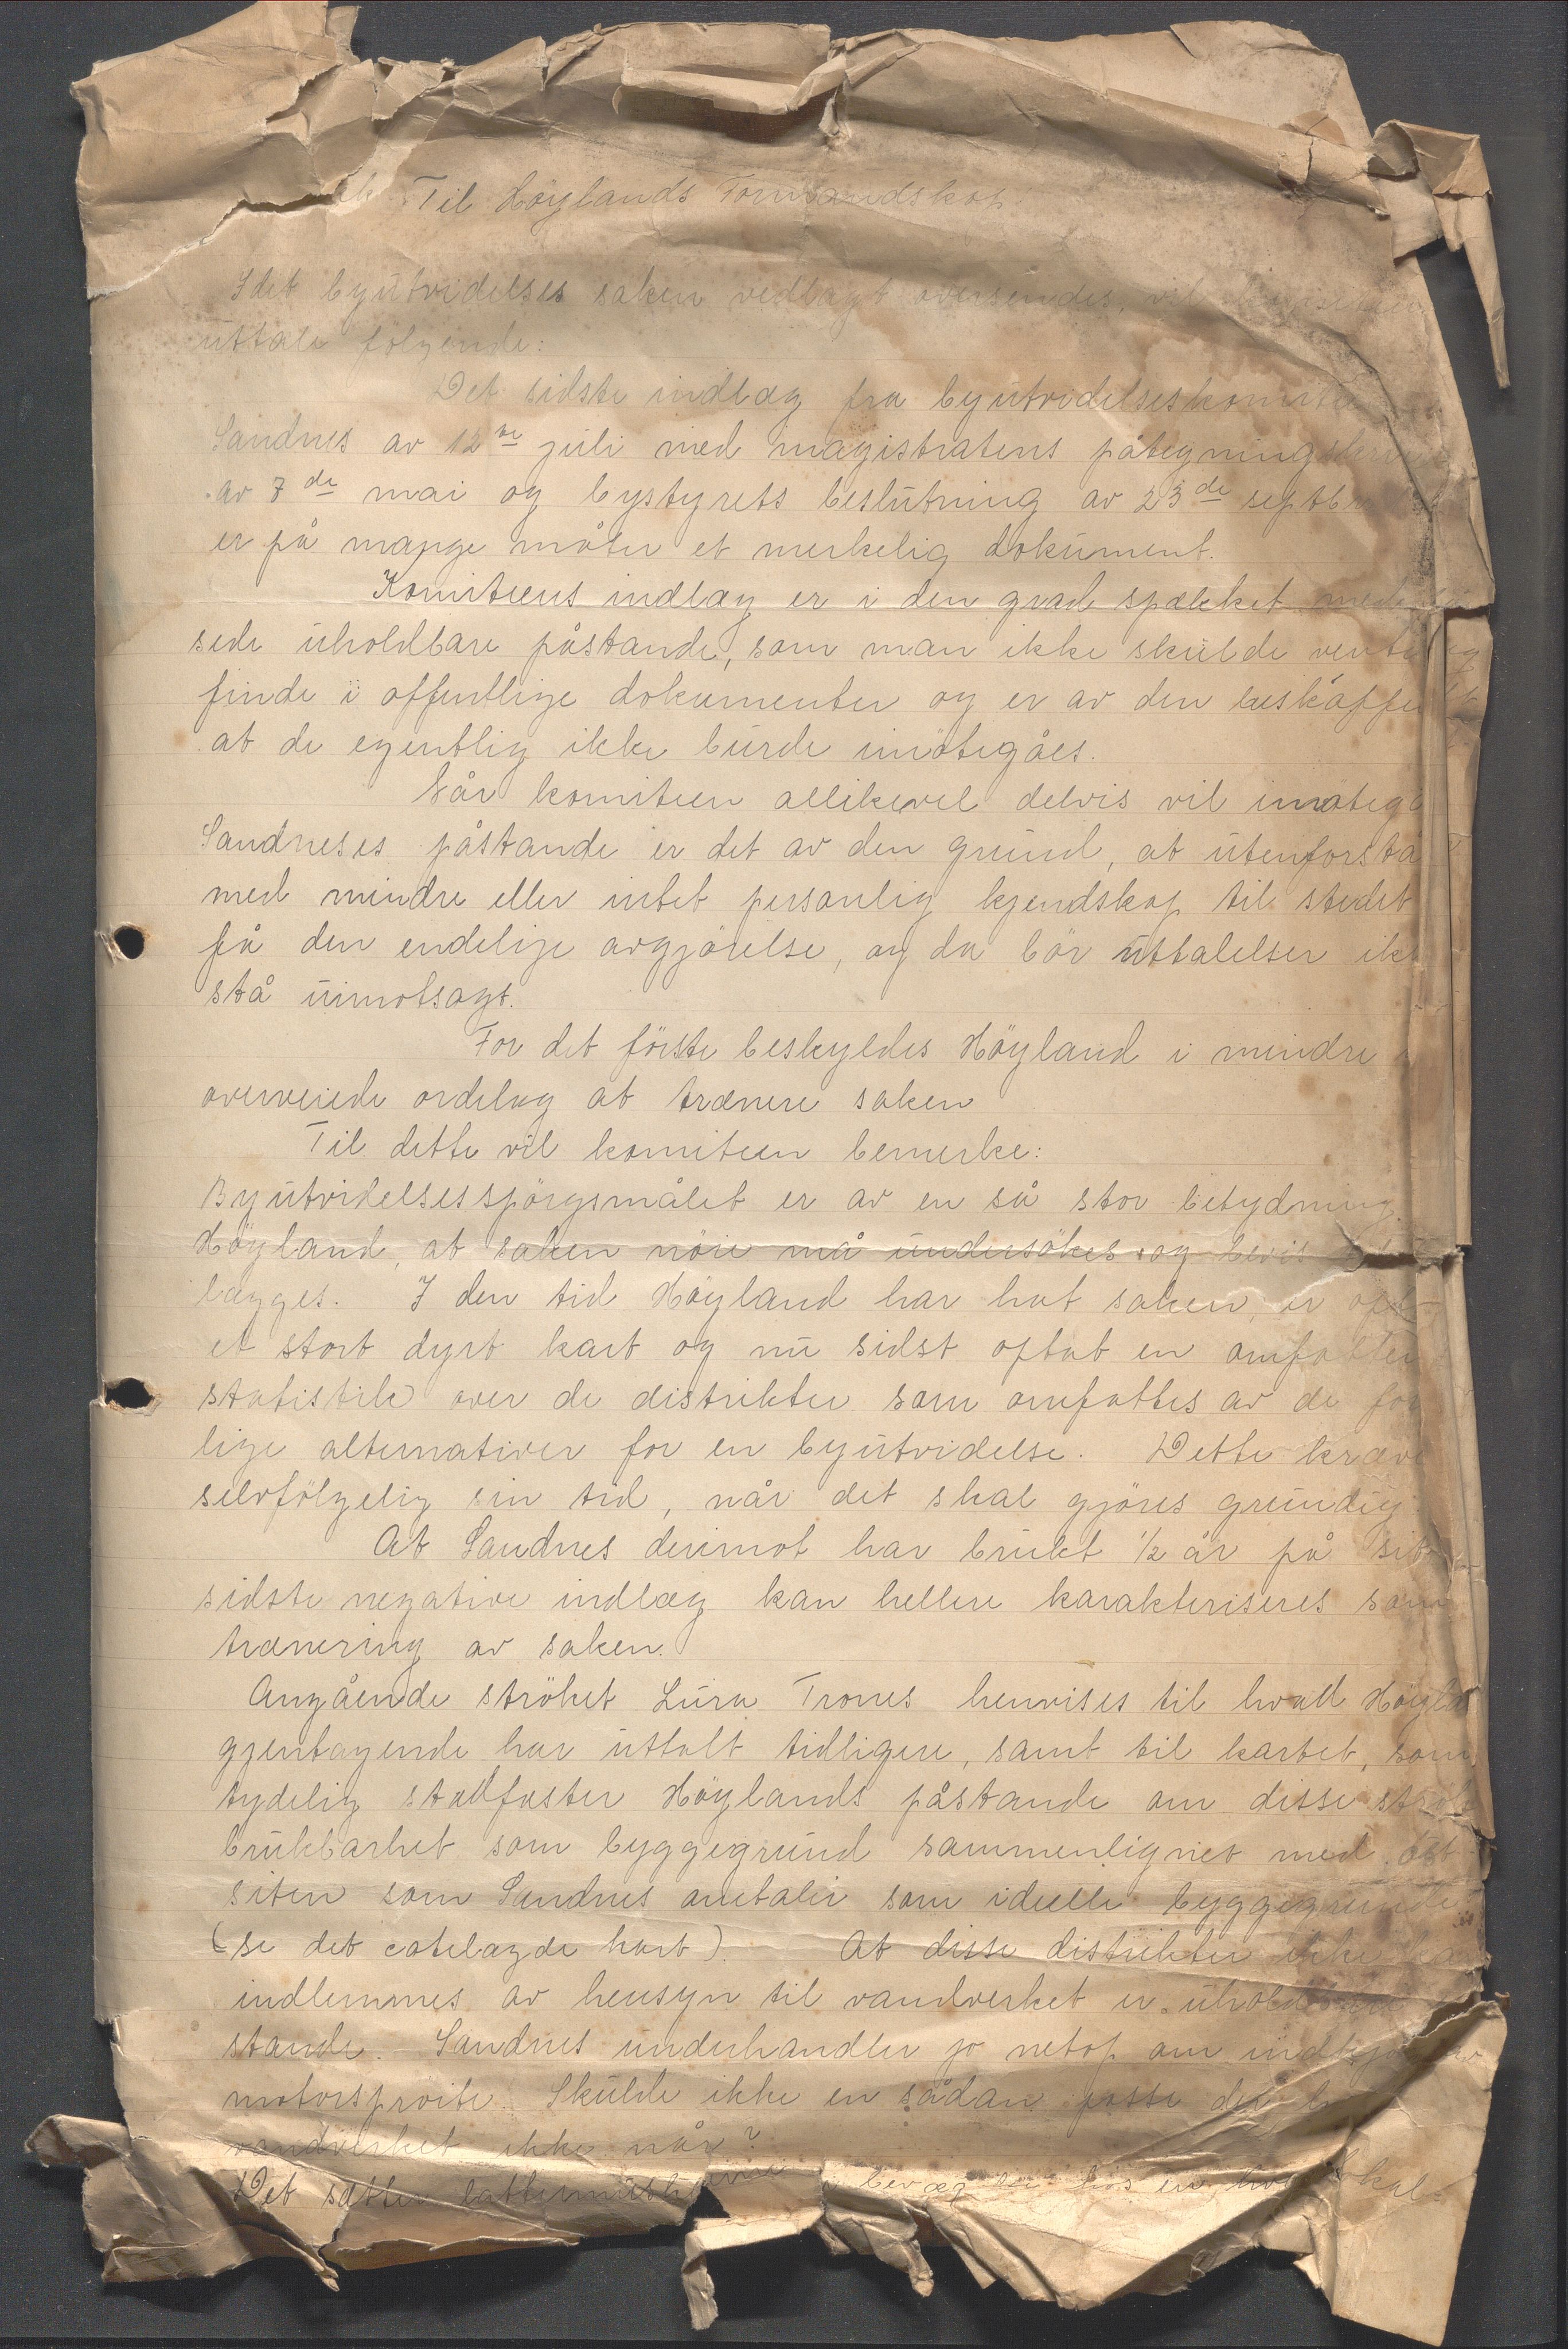 Til Höylands Formandskap.
Idet byutvidelses saken vedlagt oversendes, vil
uttale følgende:
Det sidste indlæg fra byutvidelseskomiteen
Sandnes av 12te juli med magistratens påtegning
av 7de mai og bystyrets beslutning av 23de septbr
er på mange måter et merkelig dokument.
Komiteens indlæg er i den grad spækket med
sede uholdbare påstande, som man ikke skulde vente
finde i offentlige dokumenter og er av den beskaffe
at de egentlig ikke burde imötegåes.
Når komiteen allikevel delvis vil imötegå
Sandneses påstande er det av den grund, at utenforstå
med mindre eller intet personlig kjendskap til stedet
få den endelige avgjörelse, og da bör uttalelser ikk
stå uimotsagt.
For det förste beskyldes Höyland i mindre
overveiede ordelag at trænere saken
Til dette vil komiteen bemerke:
Byutvidelsesspörgsmålet er av en så stor betydning
Höyland, at saken nöie må undersökes og bevis
lægges. I den tid Höyland har hat saken, er
et stort dyrt kart og nu sidst optat en omfatten
statistik over de distrikter som omfattes av de for
lige alternativer for en byutvidelse. Dette kræve
selvfölgelig sin tid, når det skal gjöres grundig
At Sandnes derimot har brukt 1/2 år på sit
sidste negative indlæg kan hellere karakteriseres som
trænering av saken.
Angående ströket Lura Trones henvises til hvad Höyla
gjentagende har uttalt tidligere, samt til kartet, som
tydelig stadfæster Höylands påstande om disse strök
brukbarhet som byggegrund sammenlignet med öst
siten som Sandnes omtaler som ideelle byggegrunde
(se det kart). At disse distrikter ikke kan
indlemmes av hensyn til vandverket er uholdbare
stande. Sandnes underhandler jo netop om indkjöp av
motorsproite. Skulde ikke en sådan passe der
vandverket ikke når?
Det sætter lattermusklerne i bevægelse hos en hver